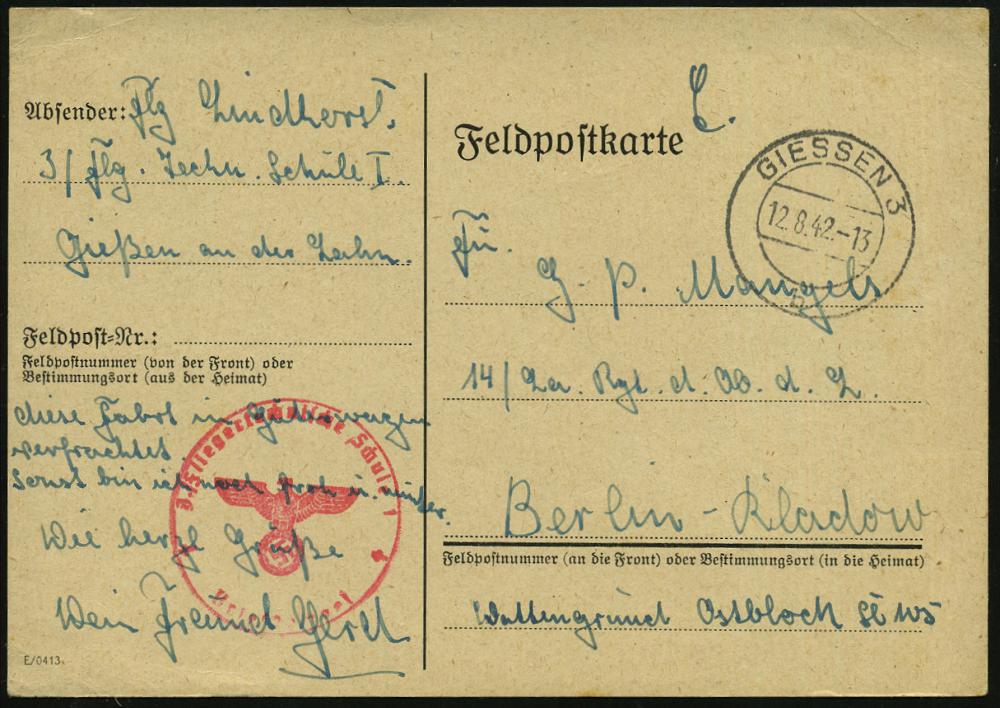 Absender: Flg Lindhorst.
3/ Flg. Techn. Schule I.
Gießen an der Lahn.
Feldpost-Nr.:
Feldpostnummer (von der Front) oder
Bestimmungsort (aus der Heimat)
diese Fahrt in Güterwagen
verfrachtet.
Sonst bin ich noch froh u. munter.
herzl Grüße
Dein Freund Gerd
E/0413.
Feldpostkarte
GIESSEN 3
12.8.42.-13
b
Fu.
P. Mangels
14/ Rgt. d. Ob. d. L.
Berlin-Kladow
Feldpostnummer (an die Front) oder Bestimmungsort (in die Heimat)
Ostblock
3./Fliegertechnische Schule 1